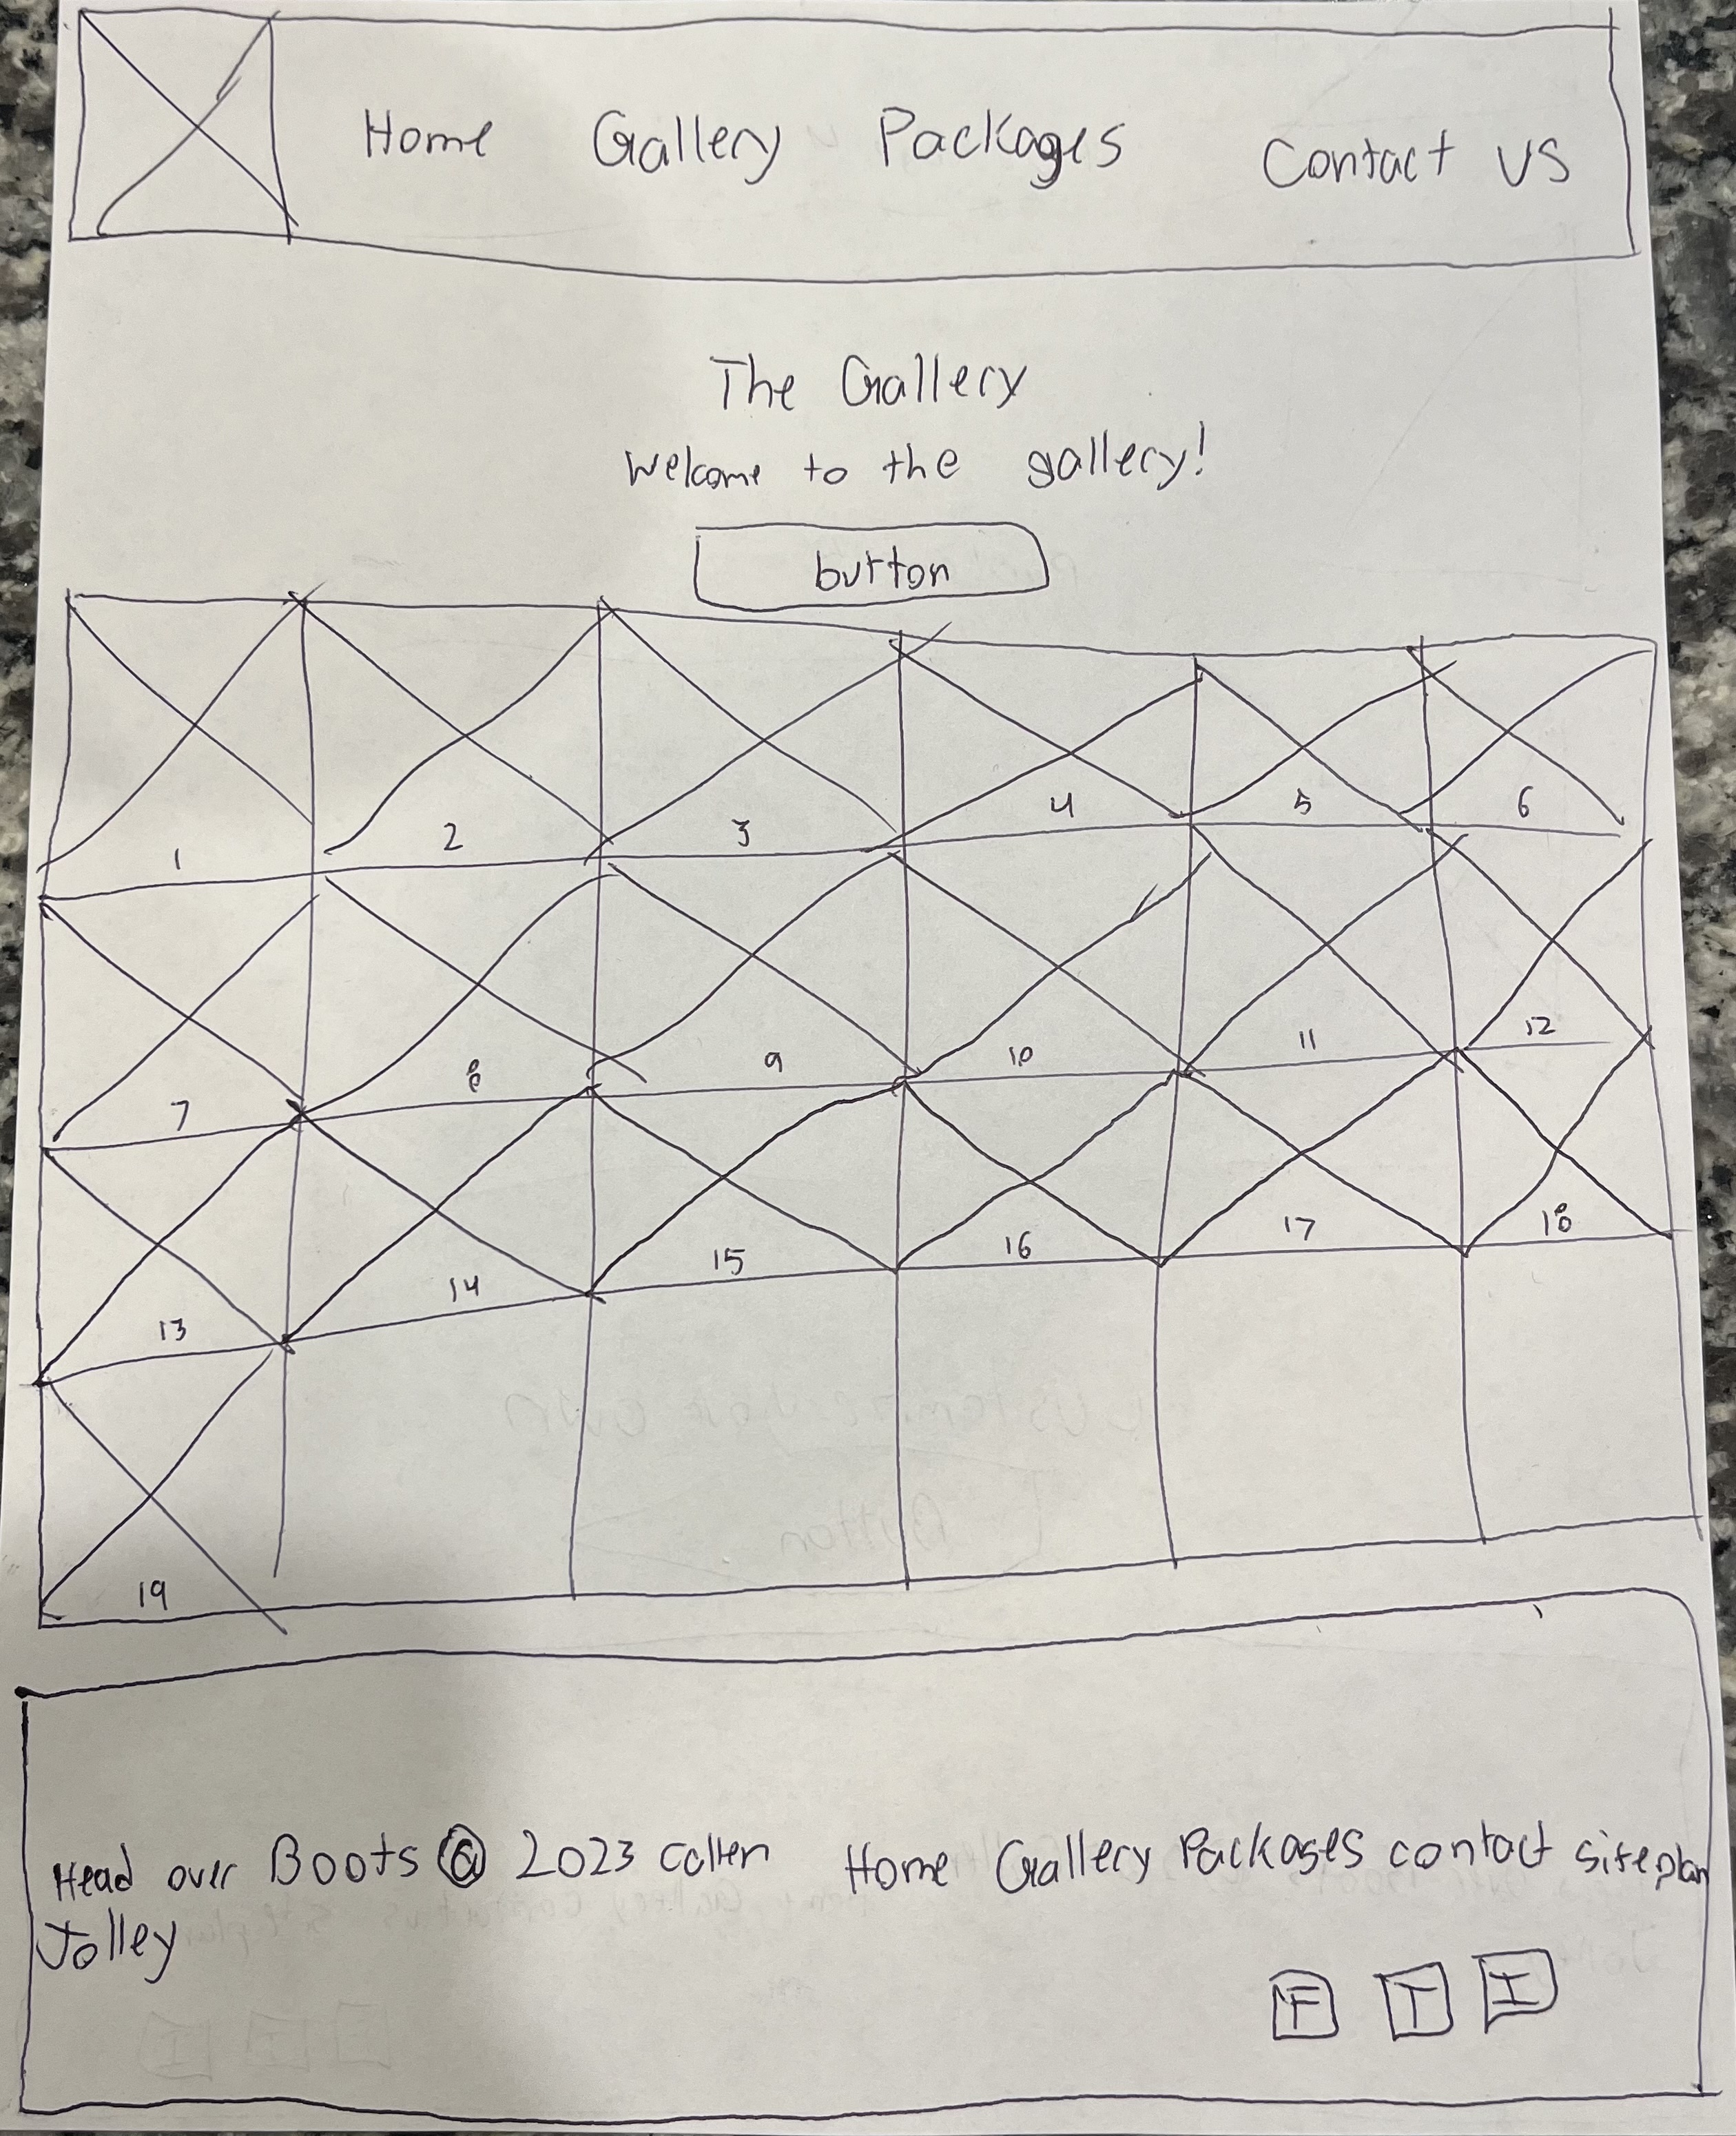 Home Gallery Packages Contact US
The Gallery
Welcome to the gallery!
button
1 2 3 4 5 6
7 8 9 10 11 12
13 14 15 16 17 18
19
Head over Boots © 2023 Colten Home Gallery Packages contact siteplan
Jolley
F T I